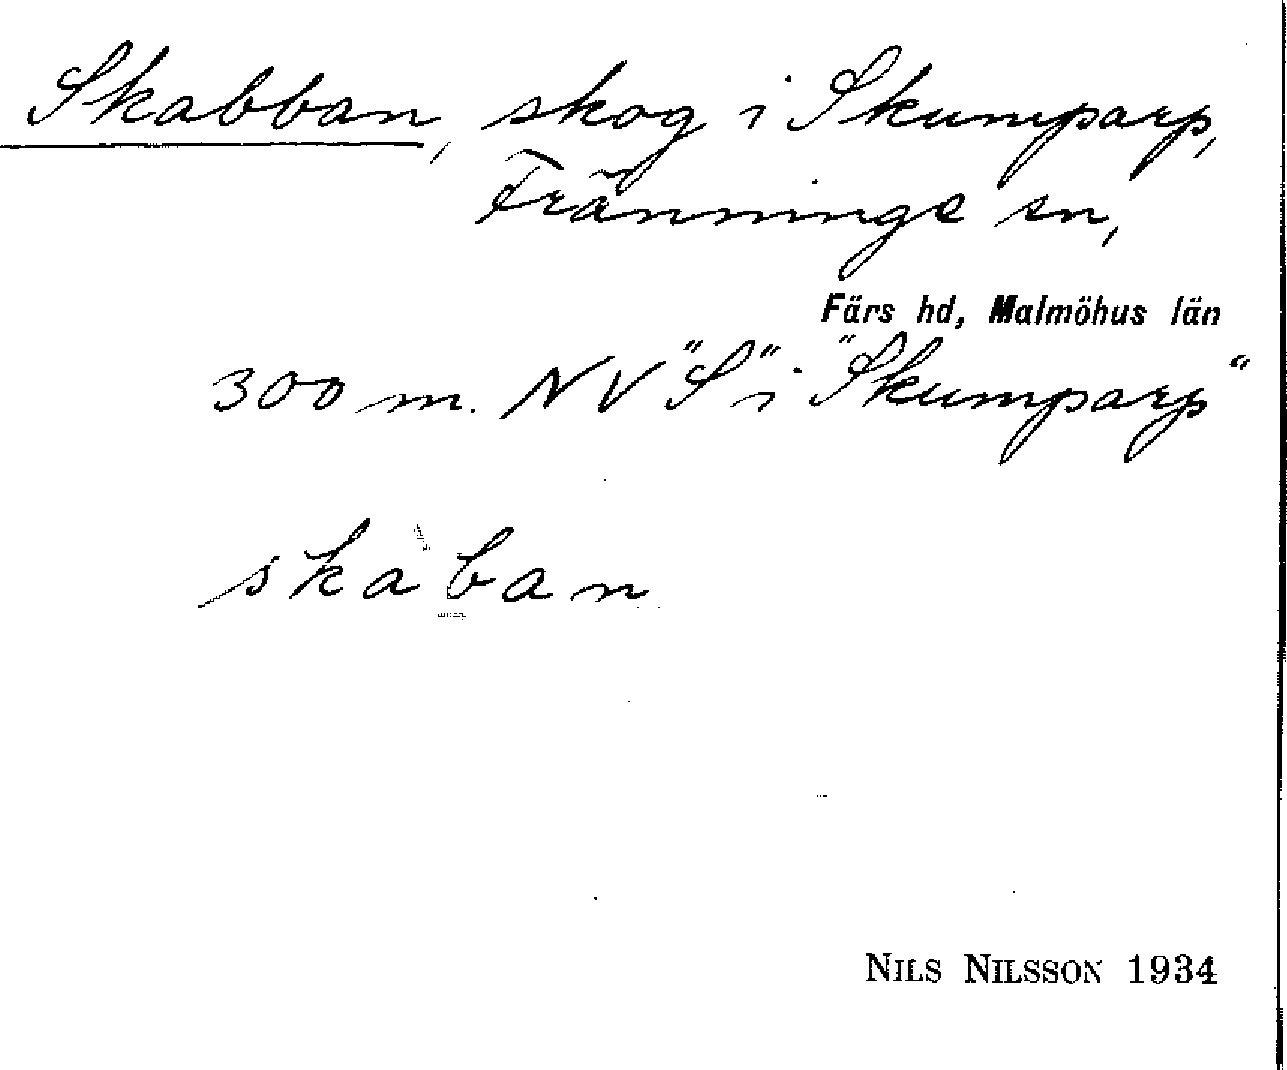 Skabban, skog i Skumparp,
Tränninge sn,
Färs hd, Malmöhus län
300 m. NV "S" i "Skumparp"
skàban
NILS NILSSON 1934